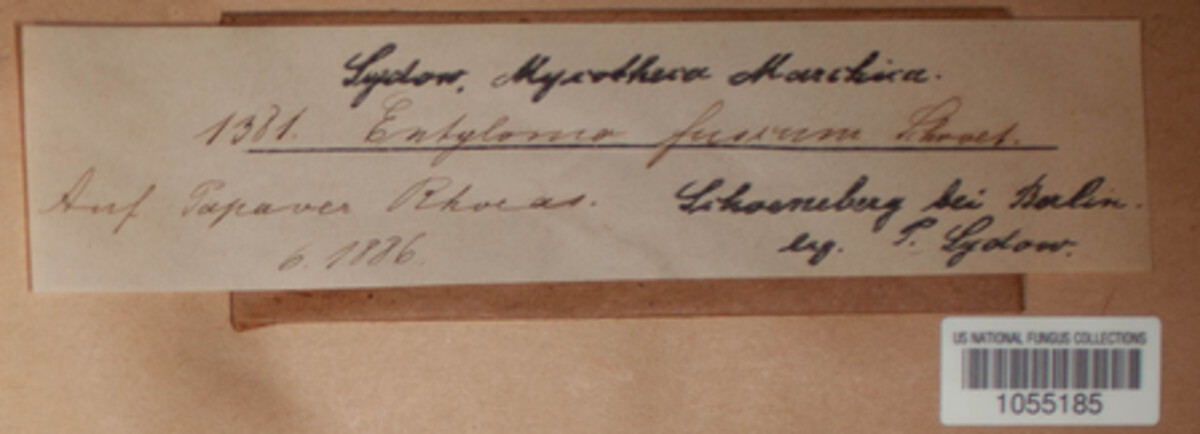 Sydow, Mycotheca Marchica.
1381. Entyloma fuscum Schroet.
Auf Papaver Rhoeas. Schoeneberg bei Berlin.
6. 1886. leg. P. Sydow.
US NATIONAL FUNGUS COLLECTIONS
1055185